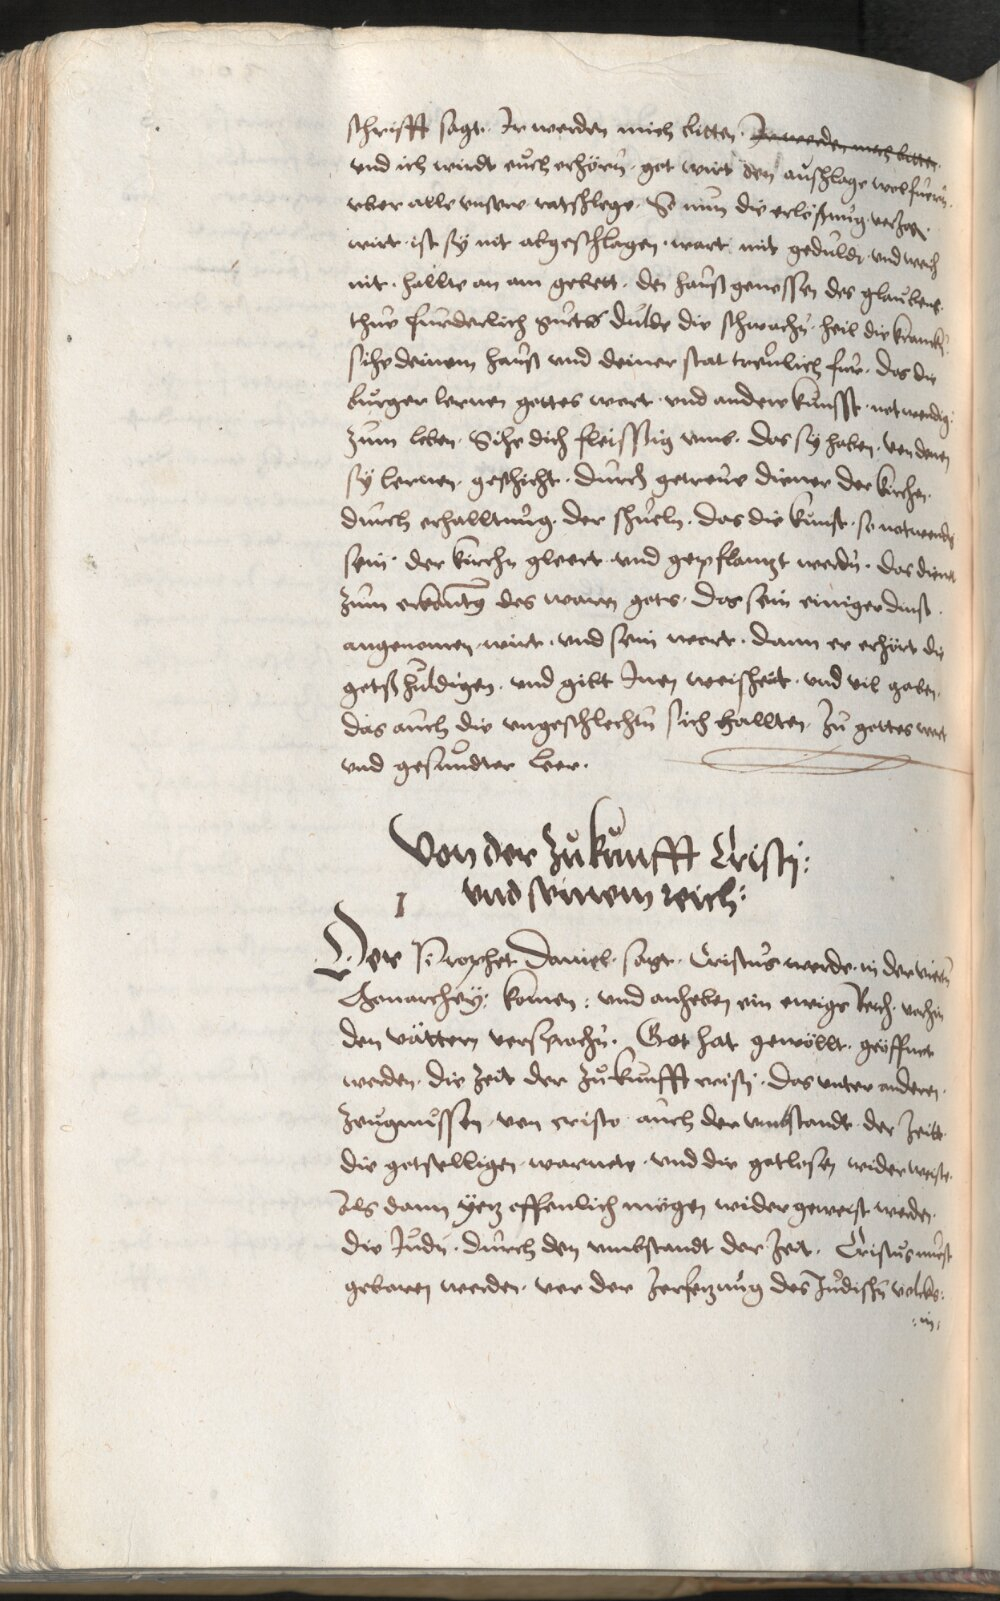 schrifft sagt. Ir werden mich bitten. Ir werden mich bitten.
vnd ich wirdt euch erhörn. got wirt den aushlage wol fuern.
vber alle vnsere ratshlege. So nun die erlößung verzogen
wirt. ist sy nit abgeschlagen. wart mit geduldt. vnd weich
nit. hallte an am gebett. den haußgenossen des glaubens.
thue furderlich guets dulde die schwachn. heil die krancken.
sihe deinem hauß vnd deiner stat treulich fur. das die
burger lernen gottes wort. vnd andere kunsst. notwendig.
zum leben. Sihe dich fleissig vmb. das sy haben. von denen
sy lernen. geschicht. durch getreue diener der kirchen.
durch erhalltung. der shueln. das die kunst. so notwendig
sein. der kirchn gleert vnd gepflantzt werdn. das dient
zum erkantnis des waren gots. das sein einiger dinst.
angenomen. wirt. vnd sein wort. dann er erhört die
gotshuldigen. vnd gibt Inen weisheit. vnd vil gaben.
das auch die vngeschlechtn sich hallten. zu gottes wort
vnd gesundter leer.
Von der Zukunfft Cristj:
vnd seinem reich:
I
Der Prophet Daniel. sagt. Cristus werde. in der viertn
Monarchey: komen: vnd anheben ein ewigs Reich. vorhin
den vättern versprochn. Got hat gewöllt. geöffnet
werden. die zeit der zukunfft cristj. das vnter anderen.
zeugnussen. von cristo. auch der vmbstandt. der zeitt.
die gotselligen. warnete. vnd die gotlosen widerweiste.
Als dann yetz offenlich mögen wider geweist werden.
die Judn. durch den vmbstandt der zeit. Cristus muest
geboren werden. vor der zersetzung des Judishn volcks:
:in: